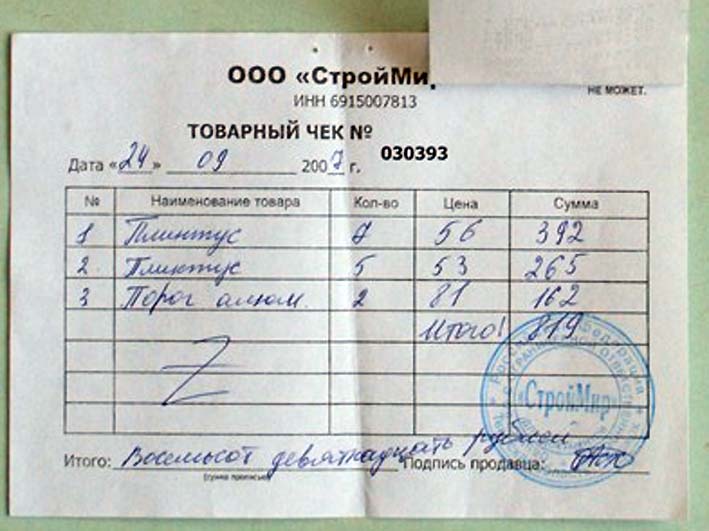 ООО «СтройМир
НЕ МОЖЕТ.
ИНН 6915007813
ТОВАРНЫЙ ЧЕК № 030393
Дата «24» 09 2007 г.
№ Наименование товара Кол-во Цена Сумма
1 Плинтус 7 56 392
2. Плинтус 5 53 265
3 Порог алюм. 2 81 162
Итого! 819
«СтройМир»
Итого: Восемьсот девятнадцать рублей Подпись продавца:
(сумма прописью)